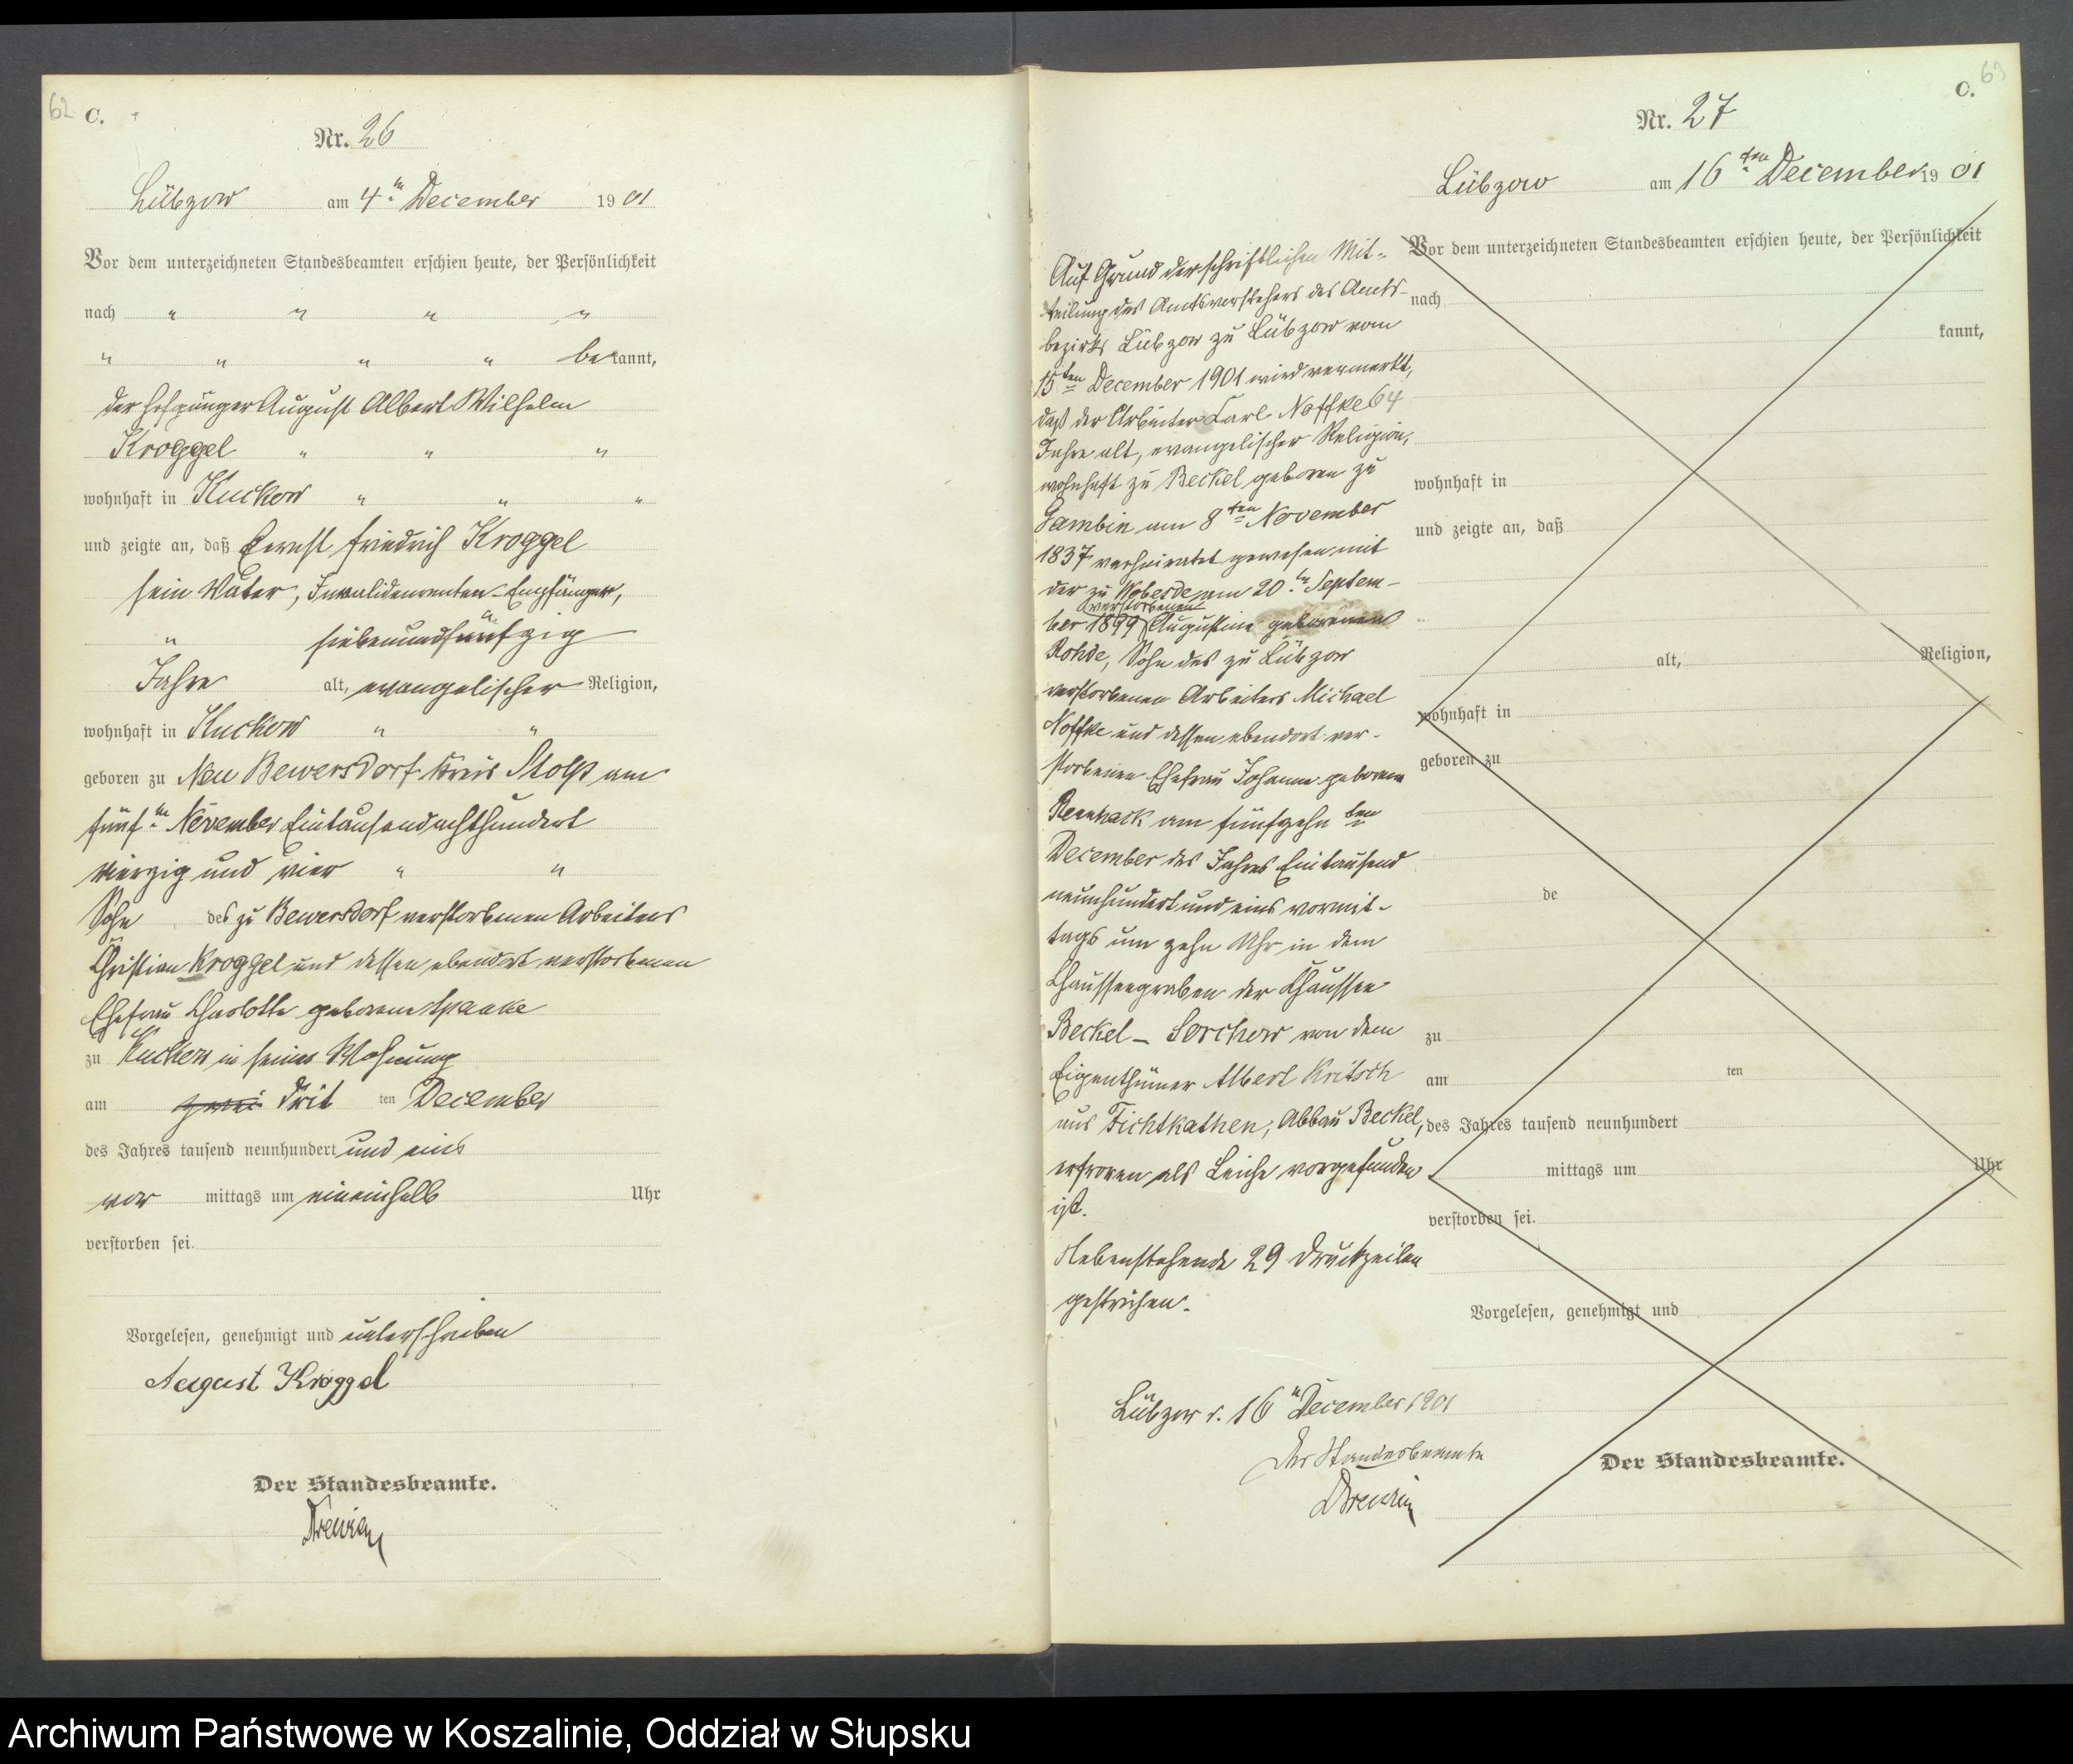 62
C.
Nr. 26
Lübzow am 4ten December 1901
Vor dem unterzeichneten Standesbeamten erschien heute, der Persönlichkeit
nach " " " "
" " " " bekannt,
der Hofgänger August Albert Wilhelm
Kroggel " " "
wohnhaft in Kuckow " " "
und zeigte an, daß Ernst Friedrich Kroggel
sein Vater, Invalidenrenten-Empfänger,
" siebenundfünfzig
Jahre alt, evangelischer Religion,
wohnhaft in Kuckow " "
geboren zu Neu Bewersdorf Kreis Stolp am
fünften November Eintausendachthundert
vierzig und vier " "
Sohn des zu Bewersdorf verstorbenen Arbeiters
Christian Kroggel und dessen ebendort verstorbenen
Ehefrau Charlotte geborene
zu Kuckow in seiner Wohnung
am zwei drit ten December
des Jahres tausend neunhundert und eins
vor mittags um eineinhalb Uhr
verstorben sei.
Vorgelesen, genehmigt und unterschrieben
August Kroggel
Der Standesbeamte.
63
C.
Nr. 27
Lübzow am 16ten December 1901
Vor dem unterzeichneten Standesbeamten erschien heute, der Persönlichkeit
nach
kannt,
wohnhaft in
und zeigte an, daß
alt, Religion,
wohnhaft in
geboren zu
de
zu
am ten
des Jahres tausend neunhundert
mittags um Uhr
verstorben sei.
Vorgelesen, genehmigt und
Der Standesbeamte.
Auf Grund der schriftlichen Mit-
teilung des Amtsvorstehers des Amts-
bezirks Lübzow zu Lübzow vom
15ten December 1901 wird vermerkt,
daß der Arbeiter Carl Noffke 64
Jahre alt, evangelischer Religion,
wohnhaft zu Beckel geboren zu
Gambin am 8ten November
1837 verheiratet gewesen mit
der zu Wobesde am 20ten Septem-
ber 1899 verstorbenen Augustine geborenen
Rohde, Sohn des zu Lübzow
verstorbenen Arbeiters Michael
Noffke und dessen ebendort ver-
storbenen Ehefrau Johanne geborene
am fünfzehnten
December des Jahres Eintausend
neunhundert und eins vormit-
tags um zehn Uhr in dem
Chausseegraben der Chaussee
Beckel - Sorchow von dem
Eigenthümer Albert Kritsch
aus Fichtkathen, Abbau Beckel,
erfroren als Leiche vorgefunden
ist.
Nebenstehende 29 Druckzeilen
gestrichen.
Lübzow d. 16ten December 1901
Der Standesbeamte
Archiwum Państwowe w Koszalinie, Oddział w Słupsku